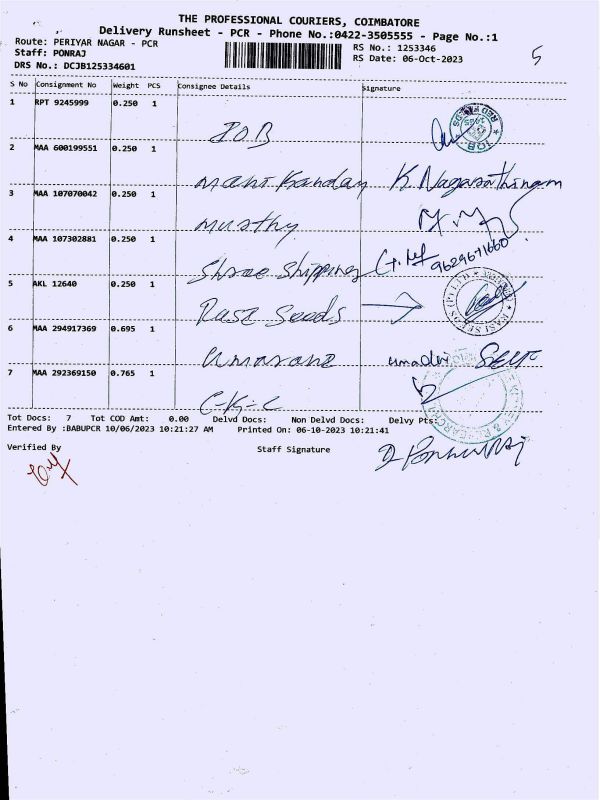 THE PROFESSIONAL COURIERS, COIMBATORE
Delivery Runsheet - PCR - Phone No.:0422-3505555 - Page No.:1
Route: PERIYAR NAGAR - PCR
RS No.: 1253346
5
Staff: PONRAJ
RS Date: 06-Oct-2023
DRS No.: DCJB125334601
S No Consignment No Weight PCS Consignee Details Signature
1 RPT 9245999 0.250 1
IOB
2 MAA 600199551 0.250 1
mani Kanday K. Nagarathingam
3 MAA 107070042 0.250 1
Murthy
4 MAA 107302881 0.250 1
Shree Shipping 9629671660
5 AKL 12640 0.250 1
Rasi Seeds
6 MAA 294917369 0.695 1
umadevi Self
7 MAA 292369150 0.765 1
Tot Docs: 7 Tot COD Amt: 0.00 Delvd Docs: Non Delvd Docs: Delvy Pts:
Entered By :BABUPCR 10/06/2023 10:21:27 AM Printed On: 06-10-2023 10:21:41
Verified By
Staff Signature